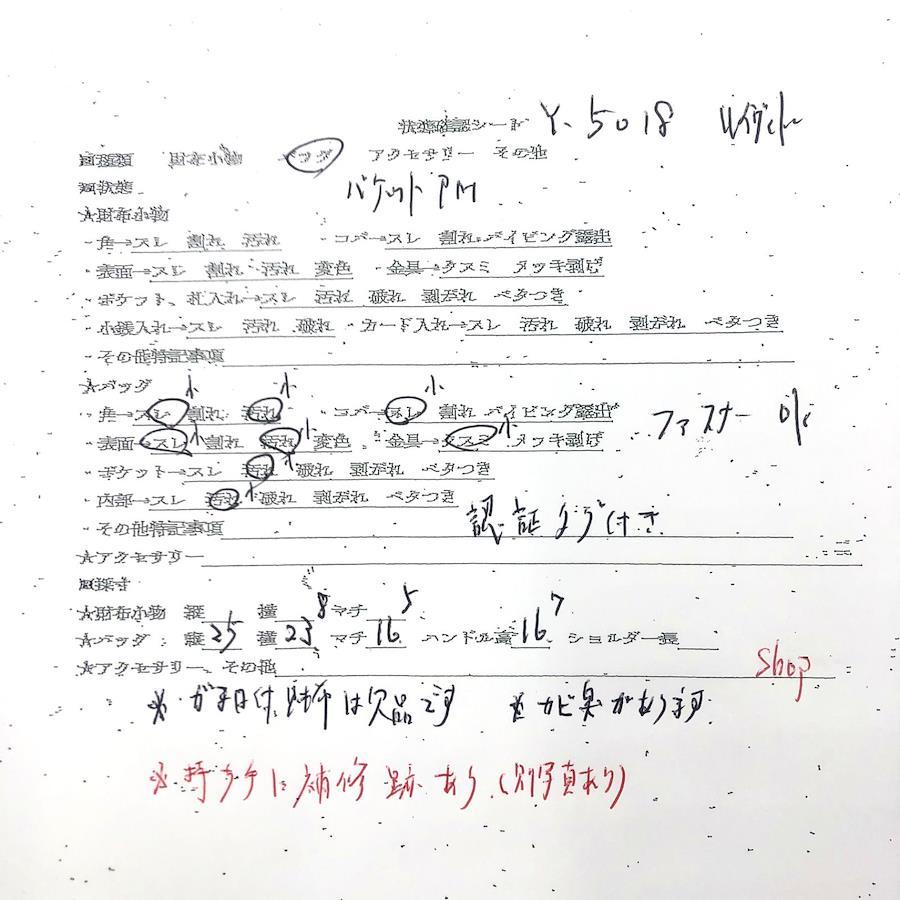 状態確認シート Y-5018 ルイヴィトン
■種類 財布小物 バッグ アクセサリー その他
■状態 バケットPM
★財布小物
・角→スレ 割れ 汚れ ・コバ→スレ 割れ パイピング露出
・表面→スレ 割れ 汚れ 変色 ・金具→クスミ メッキ剥げ
・ポケット、札入れ→スレ 汚れ 破れ 剥がれ ベタつき
・小銭入れ→スレ 汚れ 破れ ・カード入れ→スレ 汚れ 破れ 剥がれ ベタつき
・その他特記事項
★バッグ
・角→スレ小 割れ 汚れ小 ・コバ→スレ小 割れ パイピング露出
・表面→スレ小 割れ 汚れ小 変色 ・金具→クスミ小 メッキ剥げ ファスナー OK
・ポケット→スレ 汚れ小 破れ 剥がれ ベタつき
・内部→スレ 汚れ小 破れ 剥がれ ベタつき
・その他特記事項 認証タグ付き
★アクセサリー
■採寸
★財布小物 縦 横 マチ
★バッグ 縦 25 横 23.8 マチ 16.5 ハンドル高 16.7 ショルダー長
★アクセサリー、その他
Shop
※カビ臭があります
※持ち手に補修跡あり(別写真あり)